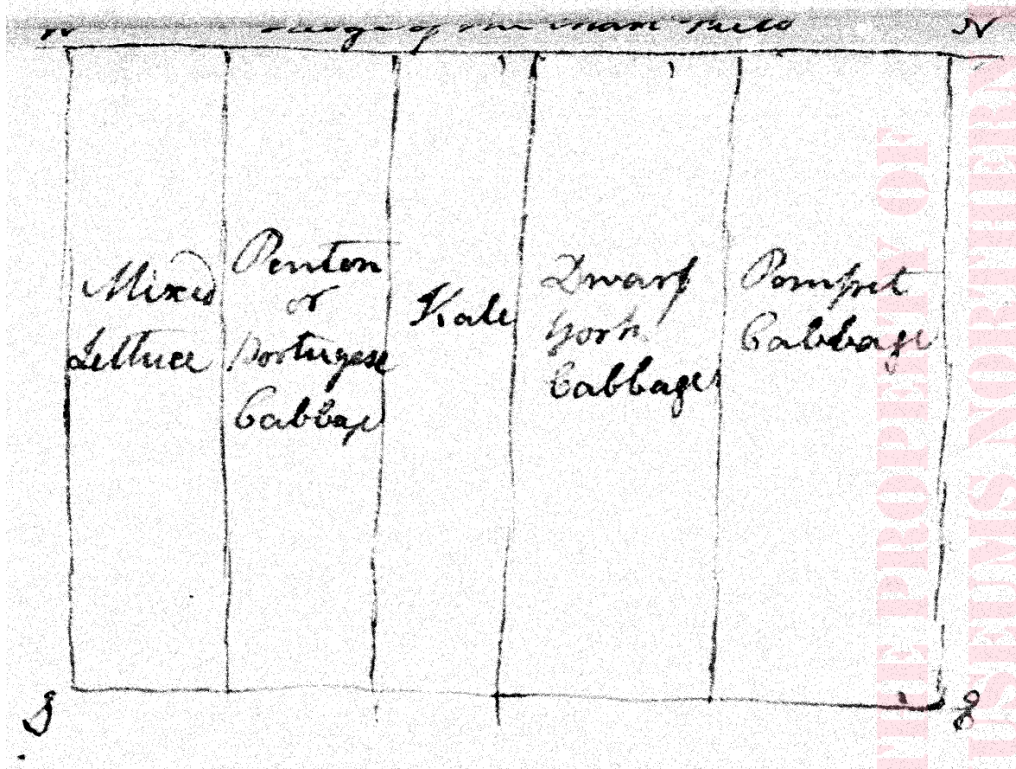 N of the N
Mixed
Lettuce
Penton
or
Portugese
Cabbage
Kale
Dwarf
York
Cabbages
Pompret
Cabbage
S S
THE PROPERTY OF
USEUMS NORTHERN